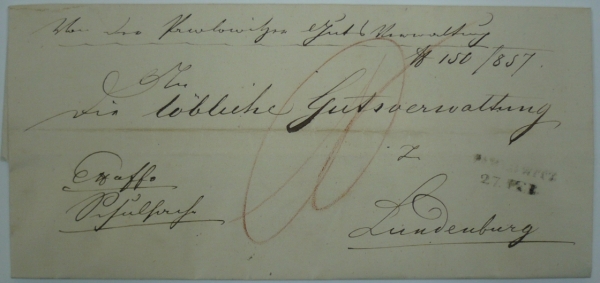 Von der Pawlowitzer Guts Verwaltung
№ 150/857.
An
die löbliche Gutsverwaltung
z
Lundenburg
Schulsache
27.